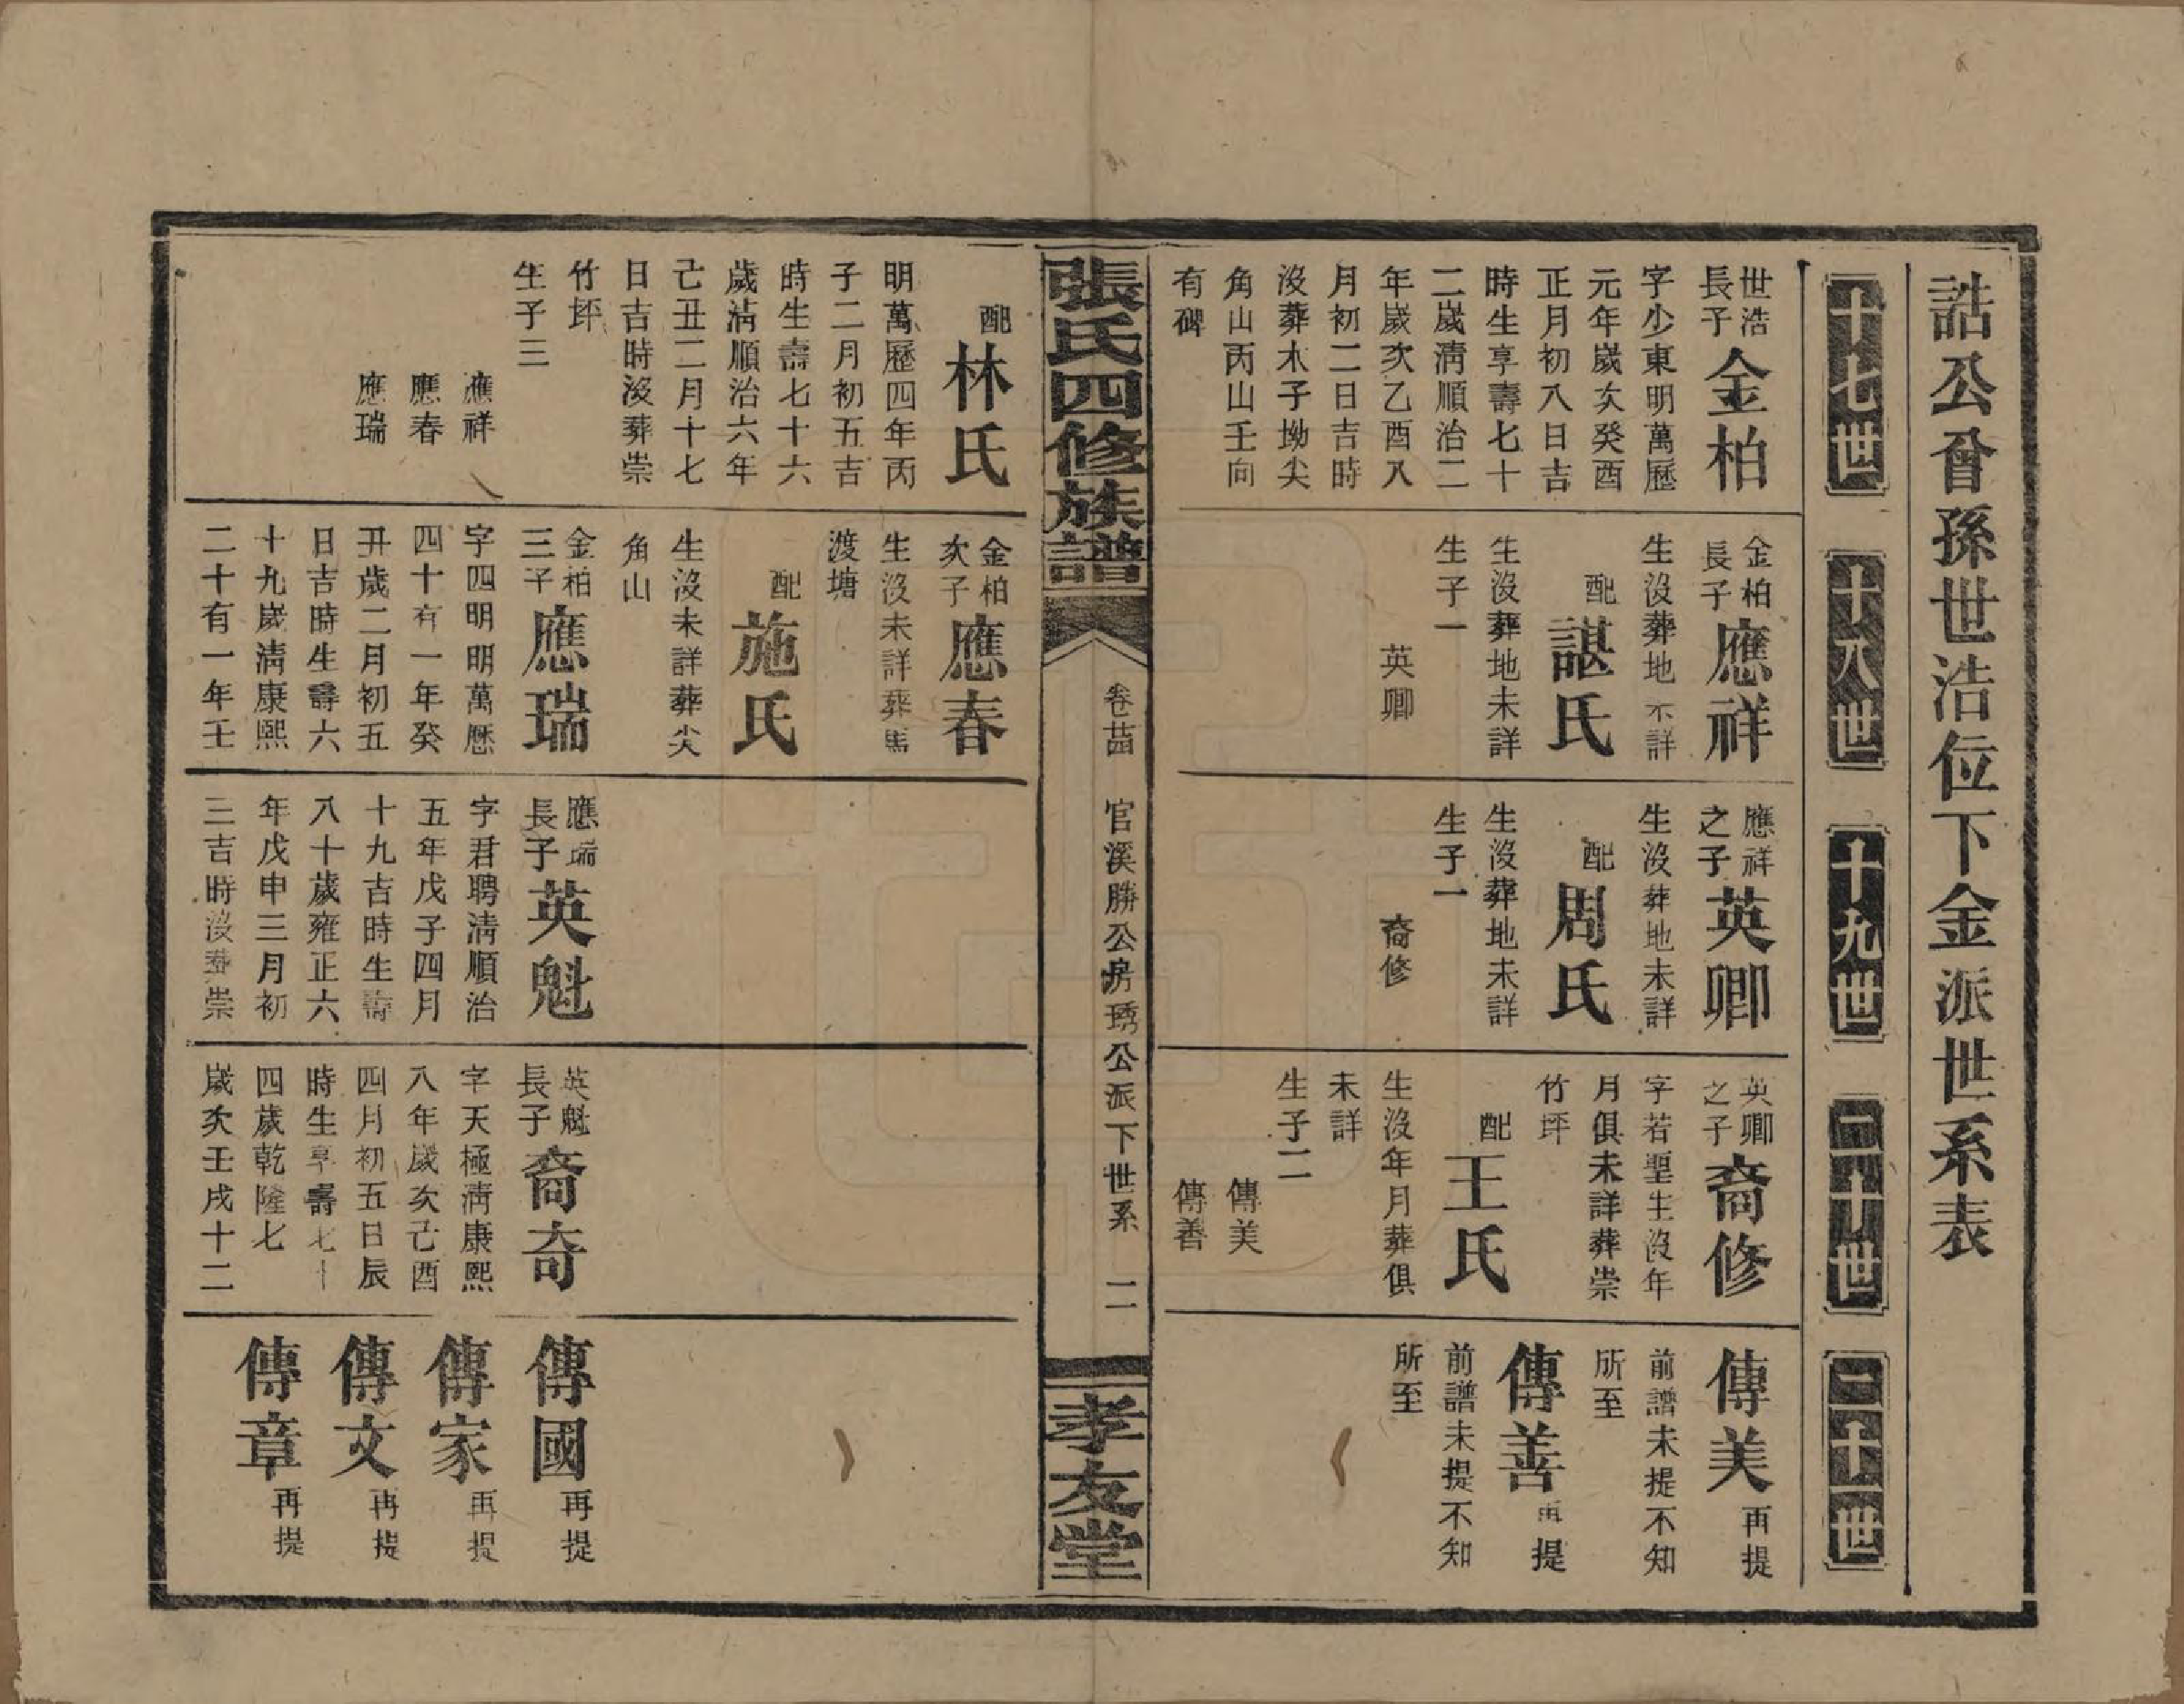 誥公曾孫世浩位下金派世系表
十七世
十八世
十九世
二十世
二十一世
世浩
長子
金柏
字少東明萬歷
元年歲次癸酉
正月初八日吉
時生享壽七十
二歲淸順治二
年歲次乙酉八
月初二日吉時
沒葬木子坳尖
角山丙山壬向
有碑
金柏
長子
應祥
生沒葬地不詳
配
諶氏
生沒葬地未詳
生子一
英卿
應祥
之子
英卿
生沒葬地未詳
配
周氏
生沒葬地未詳
生子一
裔修
英卿
之子
裔修
字若聖生沒年
月俱未詳葬崇
竹坪
配
王氏
生沒年月葬俱
未詳
生子二
傳美
傳善
傳美
再提
前譜未提不知
所至
傳善
再提
前譜未提不知
所至
張氏四修族譜
卷茁
官溪勝公房琇公派下世系
二
孝友堂
配
林氏
明萬歷四年丙
子二月初五吉
時生壽七十六
歲淸順治六年
己丑二月十七
日吉時沒葬崇
竹坪
生子三
應祥
應春
應瑞
金柏
次子
應春
生沒未詳葬馬
渡塘
配
施氏
生沒未詳葬尖
角山
金柏
三子
應瑞
字四明明萬歷
四十有一年癸
丑歲二月初五
日吉時生壽六
十九歲淸康熙
二十有一年壬
應瑞
長子
英魁
字君聘淸順治
五年戊子四月
十九吉時生壽
八十歲雍正六
年戊申三月初
三吉時沒葬崇
英魁
長子
裔奇
字天極淸康熙
八年歲次己酉
四月初五日辰
時生享壽七十
四歲乾隆七
歲次壬戌十二
傳國
再提
傳家
再提
傳文
再提
傳章
再提